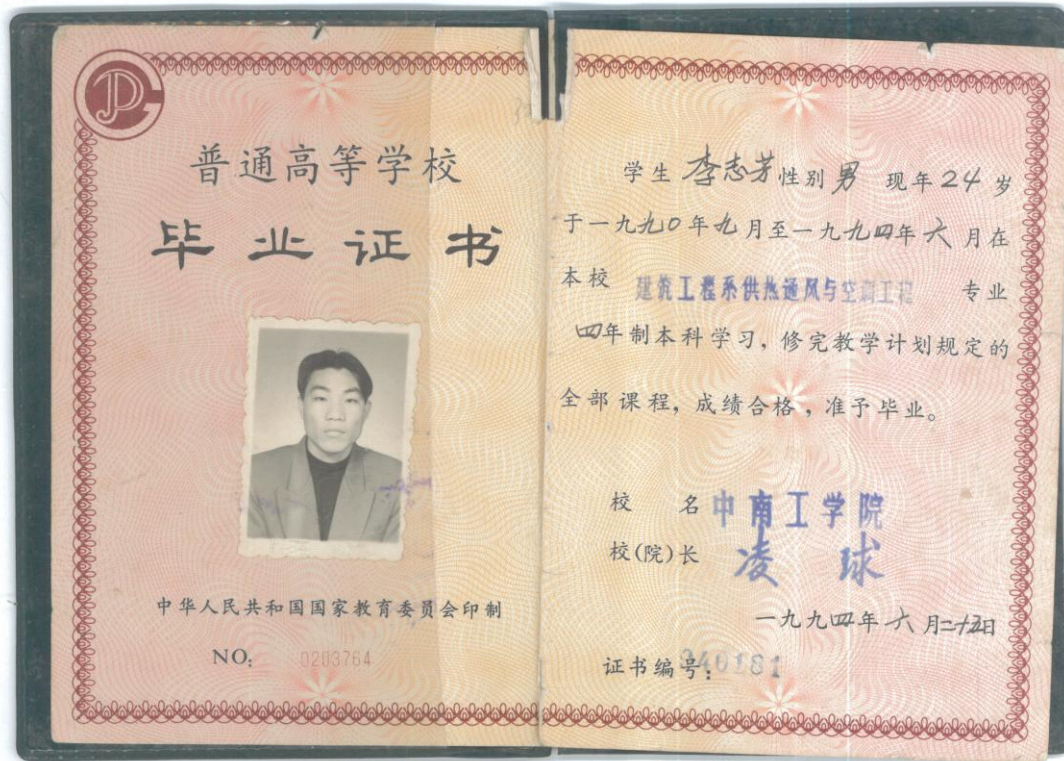 普通高等学校
毕业证书
中华人民共和国国家教育委员会印制
NO: 0203764
学生 李志芳 性别 男 现年 24 岁
于一九九0年九月至一九九四年六月在
本校 建筑工程系供热通风与空调工程 专业
四年制本科学习，修完教学计划规定的
全部课程，成绩合格，准予毕业。
校 名 中南工学院
校(院)长 凌球
一九九四年六月二十五日
证书编号: 940181